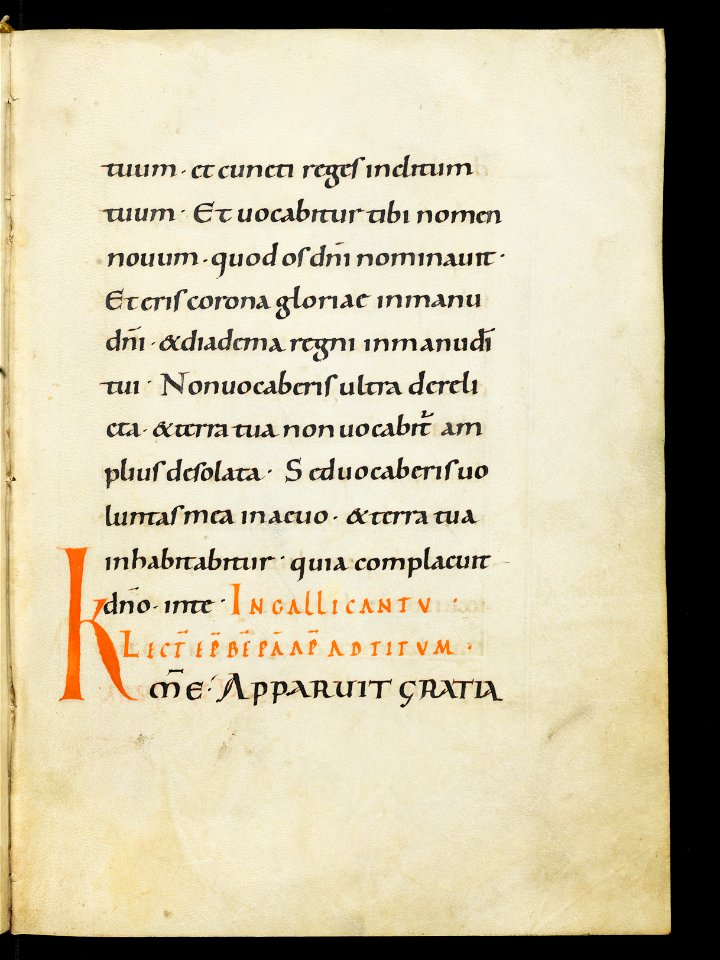 tuum · et cuncti reges inclitum
tuum · Et uocabitur tibi nomen
nouum · quod os dnī nominauit ·
Et eris corona gloriae inmanu
dnī · & diadema regni inmanu dī
tui · Non uocaberis ultra dereli
cta · & terra tua non uocabit̃ am
plius desolata · Sed uocaberis uo
luntas mea in aeuo · & terra tua
inhabitabitur · quia complacuit
dnō · inte · IN GALLICANTU ·
LECT̄ EP̄ BĒI PĀ AP̄ AD TITUM ·
km̄e · APPARUIT GRATIA